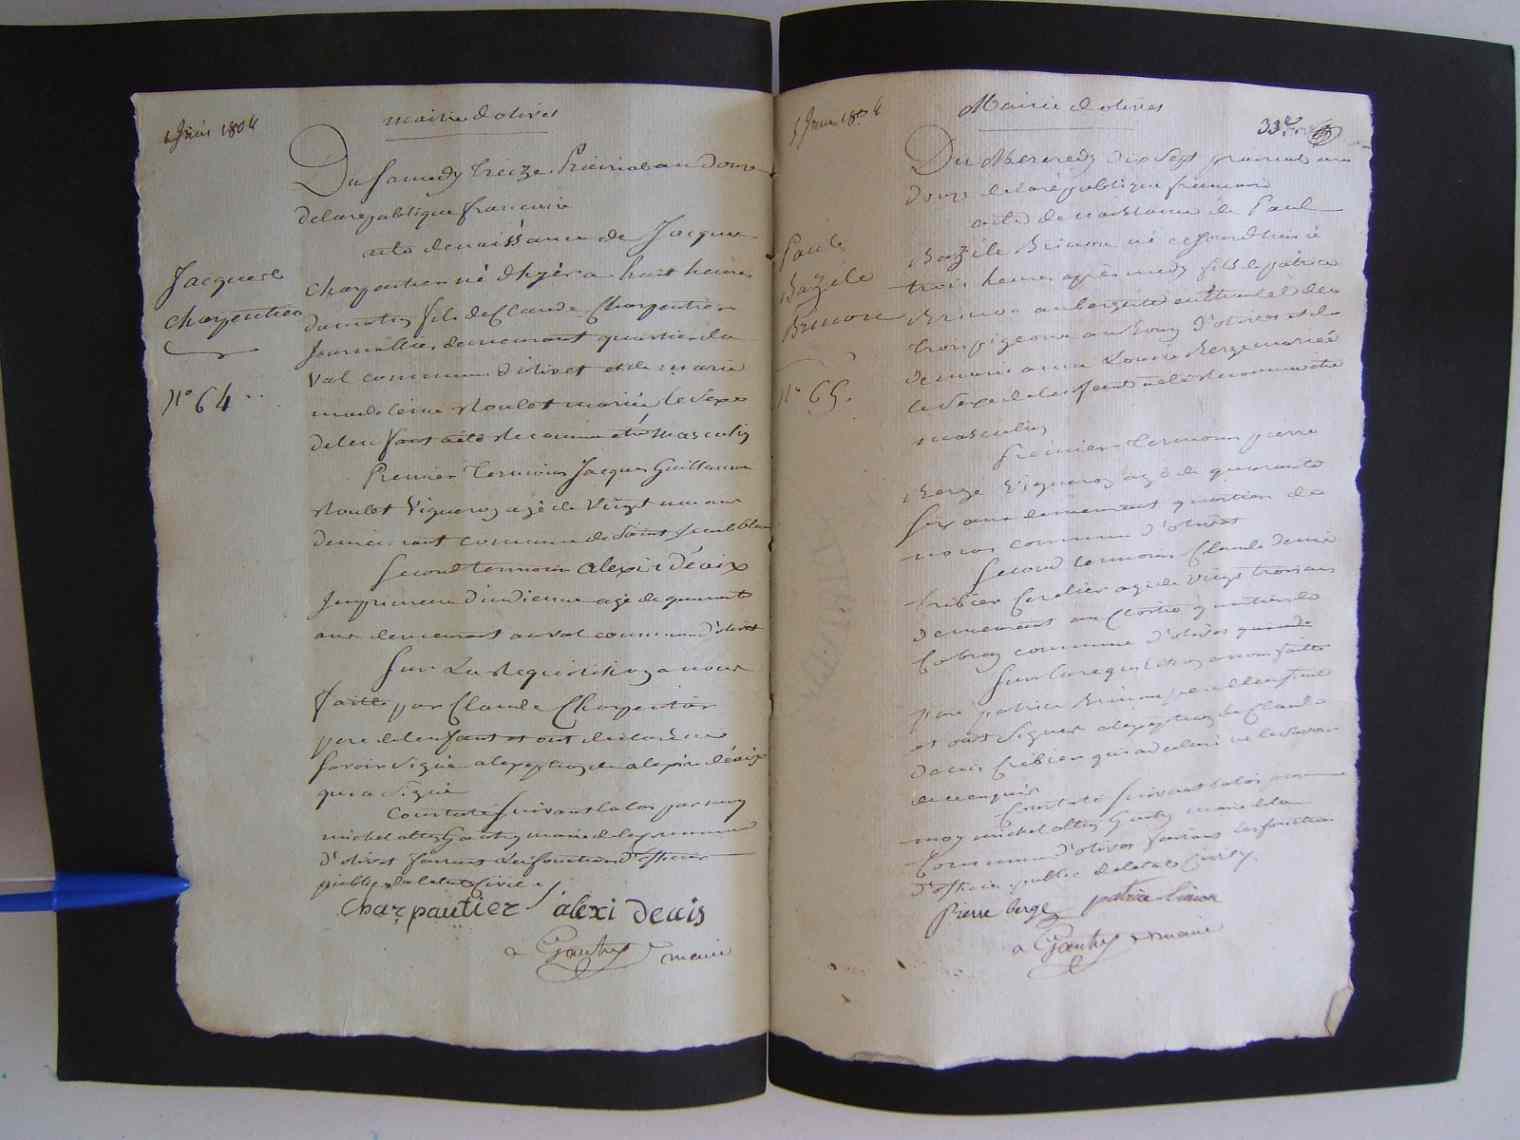 2 Juin 1804
mairie d'olivet
Du Samedy treize Prairial an douze
de la republique francaise
acte de naissance de Jacque
Jacque
charpentier
N° 64
charpentier né d'hyèr a huit heures
du matin fils de Claude Charpentier
Journallier demeurant quartier du
Val commune d'olivet et de marie
madeleine Roulet mariés le sexe
de lenfant a été reconnu être masculin
Premier temoin Jacque Guillaume
Roulet Vigneron agé de vingt un ans
demeurant commune de Saint
Second temoin alexi deais
Imprimeur d'indienne agé de quarante
ans demeurant au val commune d'olivet
Sur La Requisition a nous
faitte par Claude Charpentier
pere de lenfant et ont declaré ne
savoir signé a lexeption de alexi deais
qui a signé
Constaté suivant la loi par moy
michel altin Gautry maire de la commune
d'olivet faisant les fonctions d'officier
public de letat Civil
charpautier alexi deais
a Gautry maire
5 Juin 1804
Mairie d'olivet
33e
Du Mercredy dix sept prairial an
douze de la republique francaise
acte de naissance de Paul
Paul
Bazile
Brinon
N° 65.
Bazile Brinon né ce jourdhui à
trois heures après midy fils de patrice
Brinon aubergiste
trois pigeons au bourg d'olivet et de
Louise Berge mariés
le sexe de lenfant a été reconnu être
masculin
Premier temoin pierre
Berge Vigneron agé de quarante
six ans demeurant quartier de
commune d'olivet
Second temoin Claude denis
Crebier agé de vingt trois ans
demeurant au quartier de
commune d'olivet
Sur la requisition a nous faitte
par patrice Brinon pere de lenfant
et ont signé a lexeption de Claude
denis Crebier qui a declaré ne le savoir
de ce enquis
Constaté suivant la loi par
moy michel altin Gautry maire de la
Commune d'olivet faisant les fonctions
d'officier public de letat Civil.
pierre berge patrice brinon
a Gautry maire